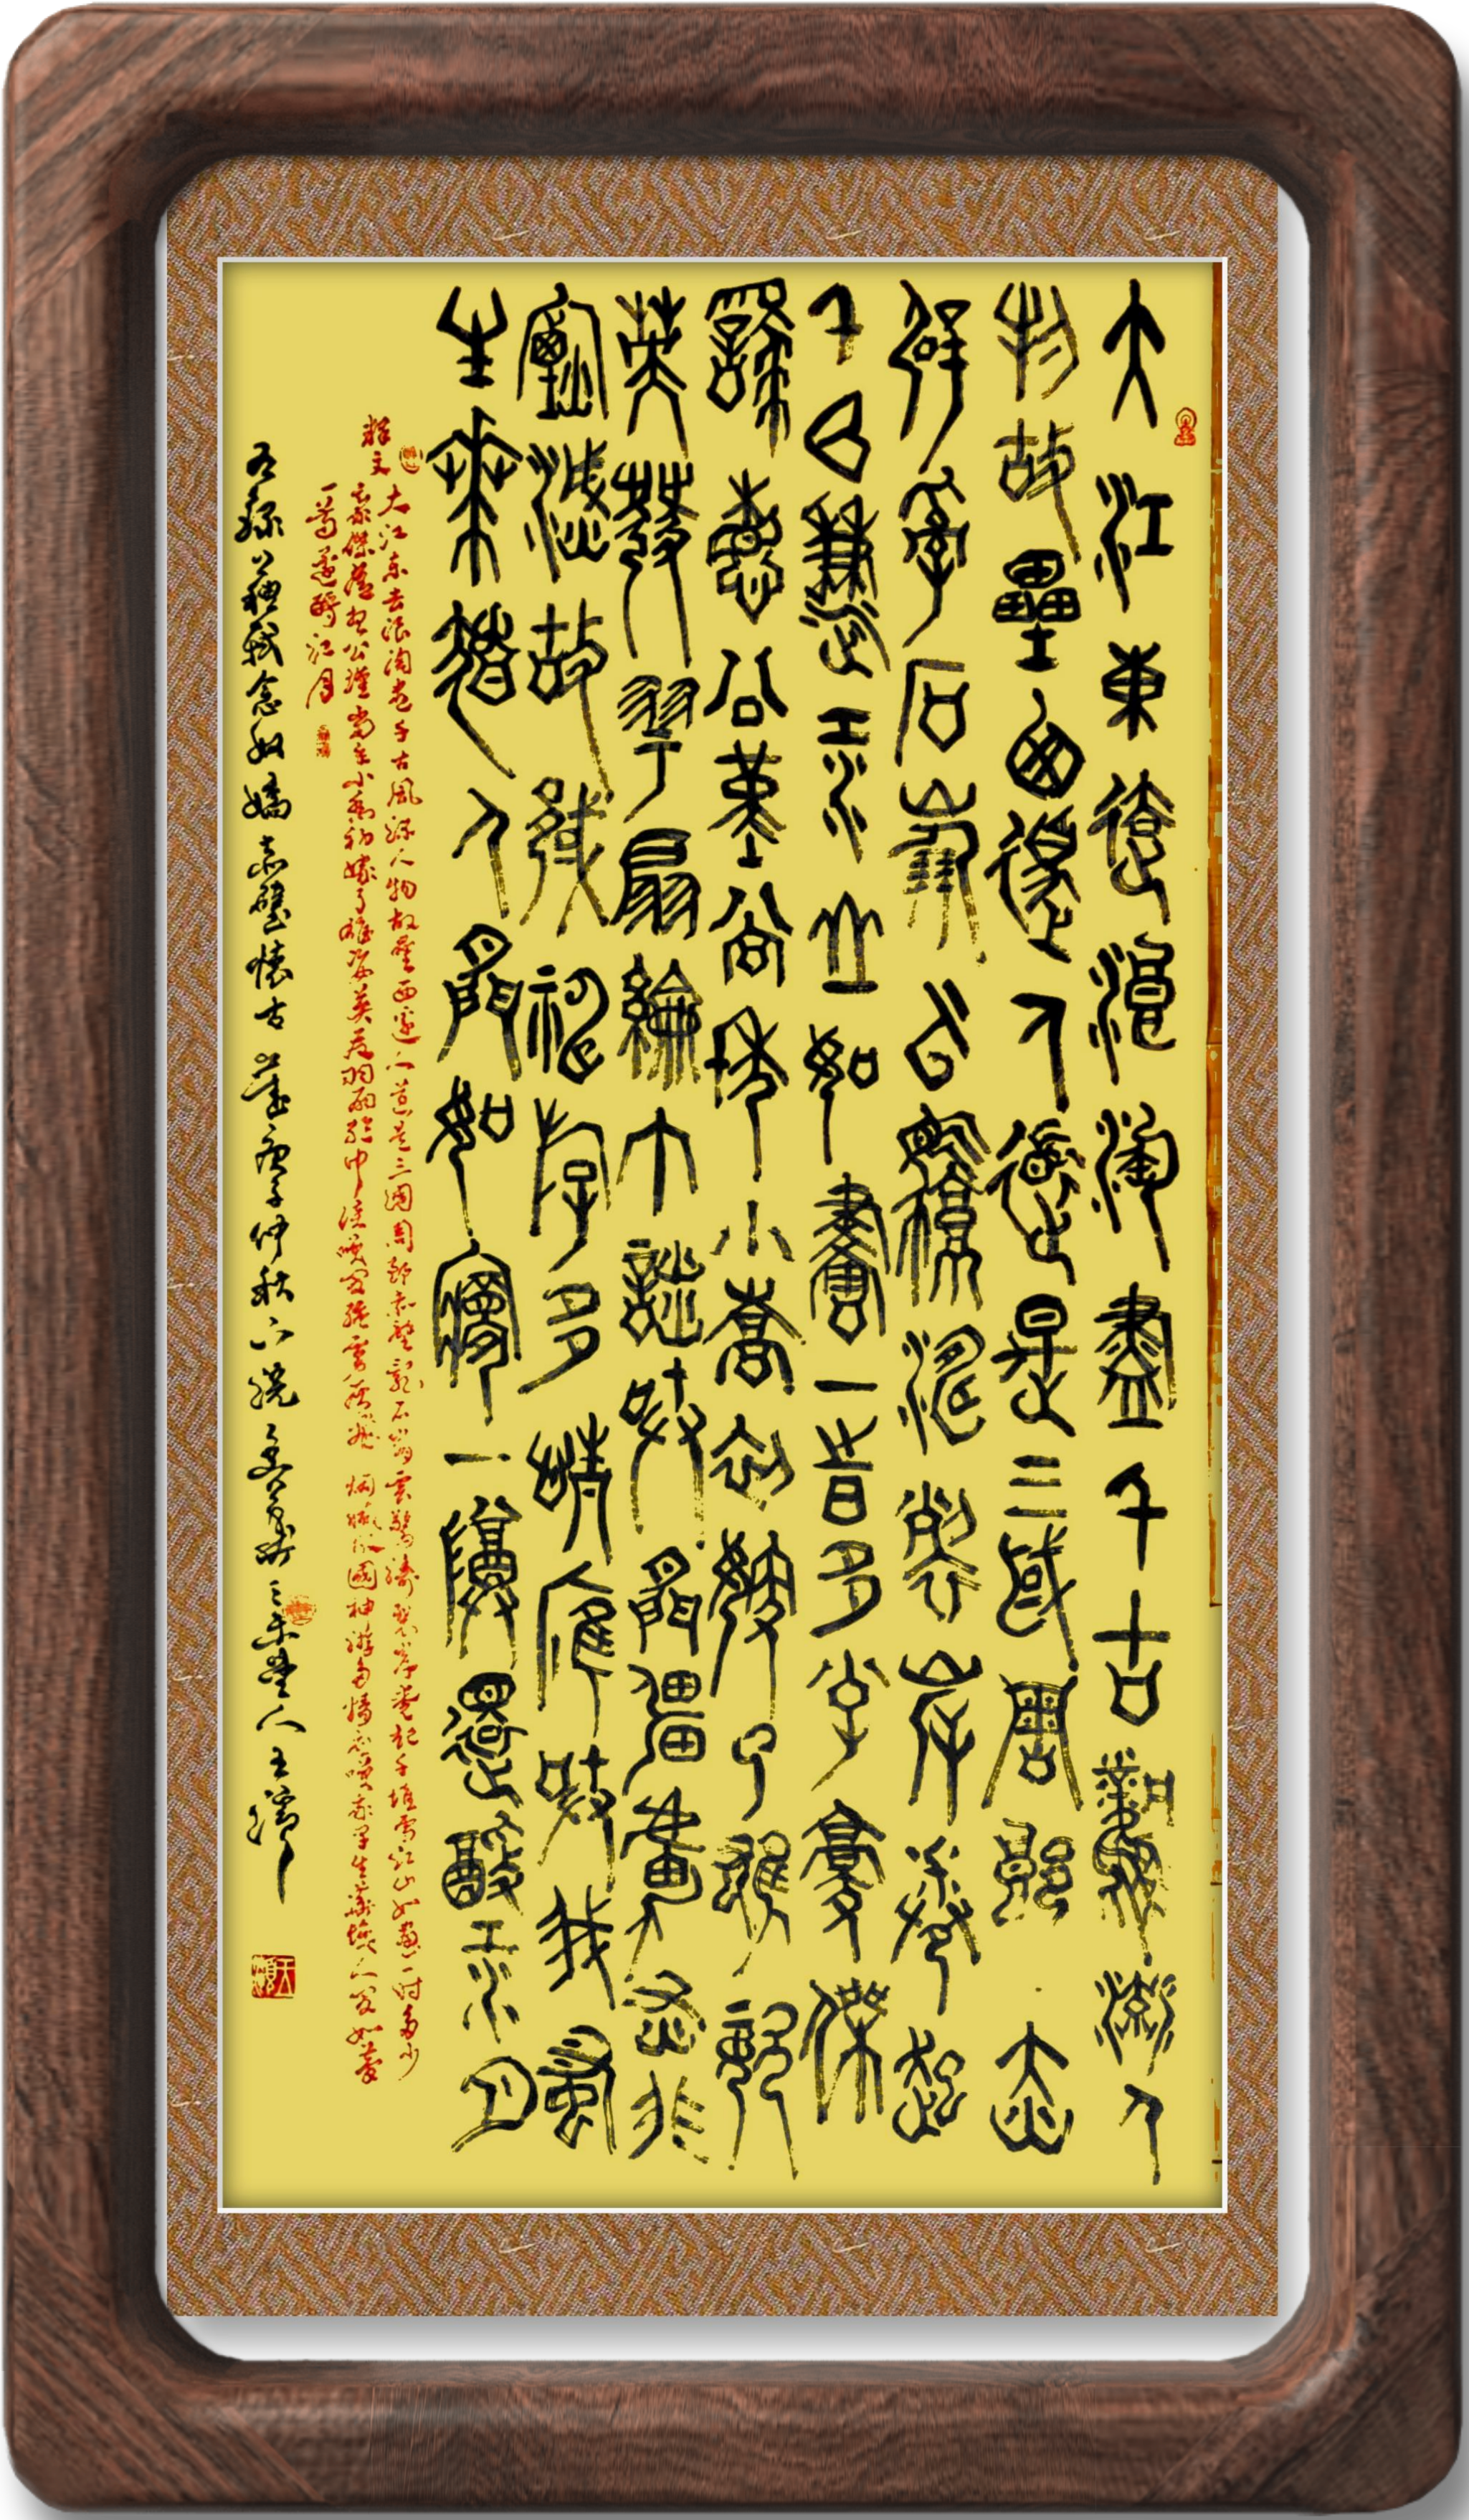 大江東去浪淘盡千古風流人
物故壘西邊人道是三國周郎赤
壁亂石崩雲驚濤裂岸卷起
千堆雪江山如畫一時多少豪傑
遙想公瑾當年小喬初嫁了雄姿
英發羽扇綸巾談笑間強虜灰飛
煙滅故國神游多情應笑我早
生華髮人間如夢一尊還酹江月
釋文
大江東去浪淘盡千古風流人物故壘西邊人道是三國周郎赤壁亂石崩雲驚濤裂岸卷起千堆雪江山如畫一時多少
豪傑遙想公瑾當年小喬初嫁了雄姿英發羽扇綸巾談笑間強虜灰飛煙滅故國神游多情應笑我早生華髮人間如夢
一尊還酹江月
右錄蘇軾念奴嬌赤壁懷古歲庚子仲秋